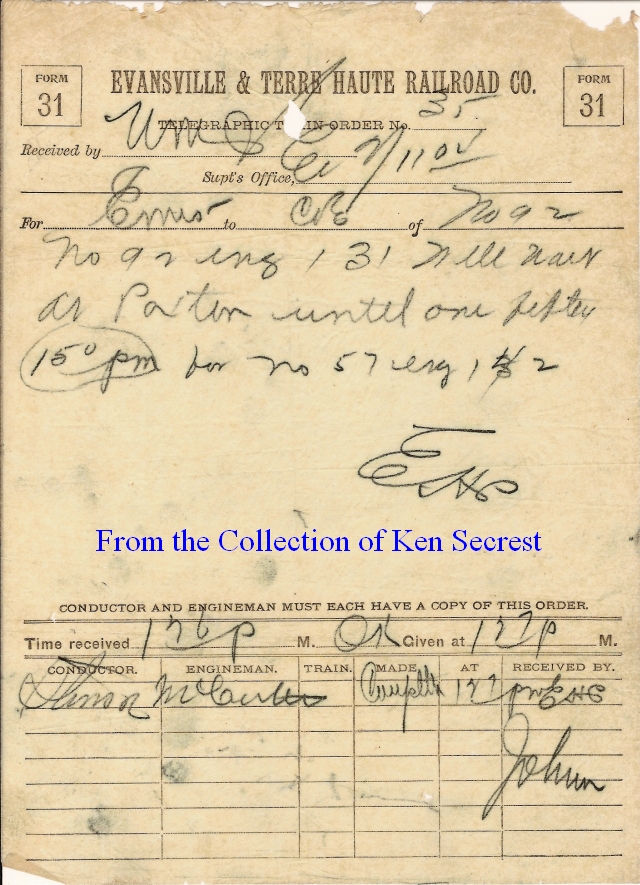 FORM 31 EVANSVILLE & TERRE HAUTE RAILROAD CO. FORM 31
TELEGRAPHIC TRAIN ORDER No. 35
Received by
Supt's Office,
For to of No 92
No 92 eng 131 will wait
at Paxton until one fifty
150 pm for no 57 eng 142
EHP
From the Collection of Ken Secrest
CONDUCTOR AND ENGINEMAN MUST EACH HAVE A COPY OF THIS ORDER.
Time received 126 p M. OK Given at 127 p M.
CONDUCTOR. ENGINEMAN. TRAIN. MADE AT RECEIVED BY.
127 pm